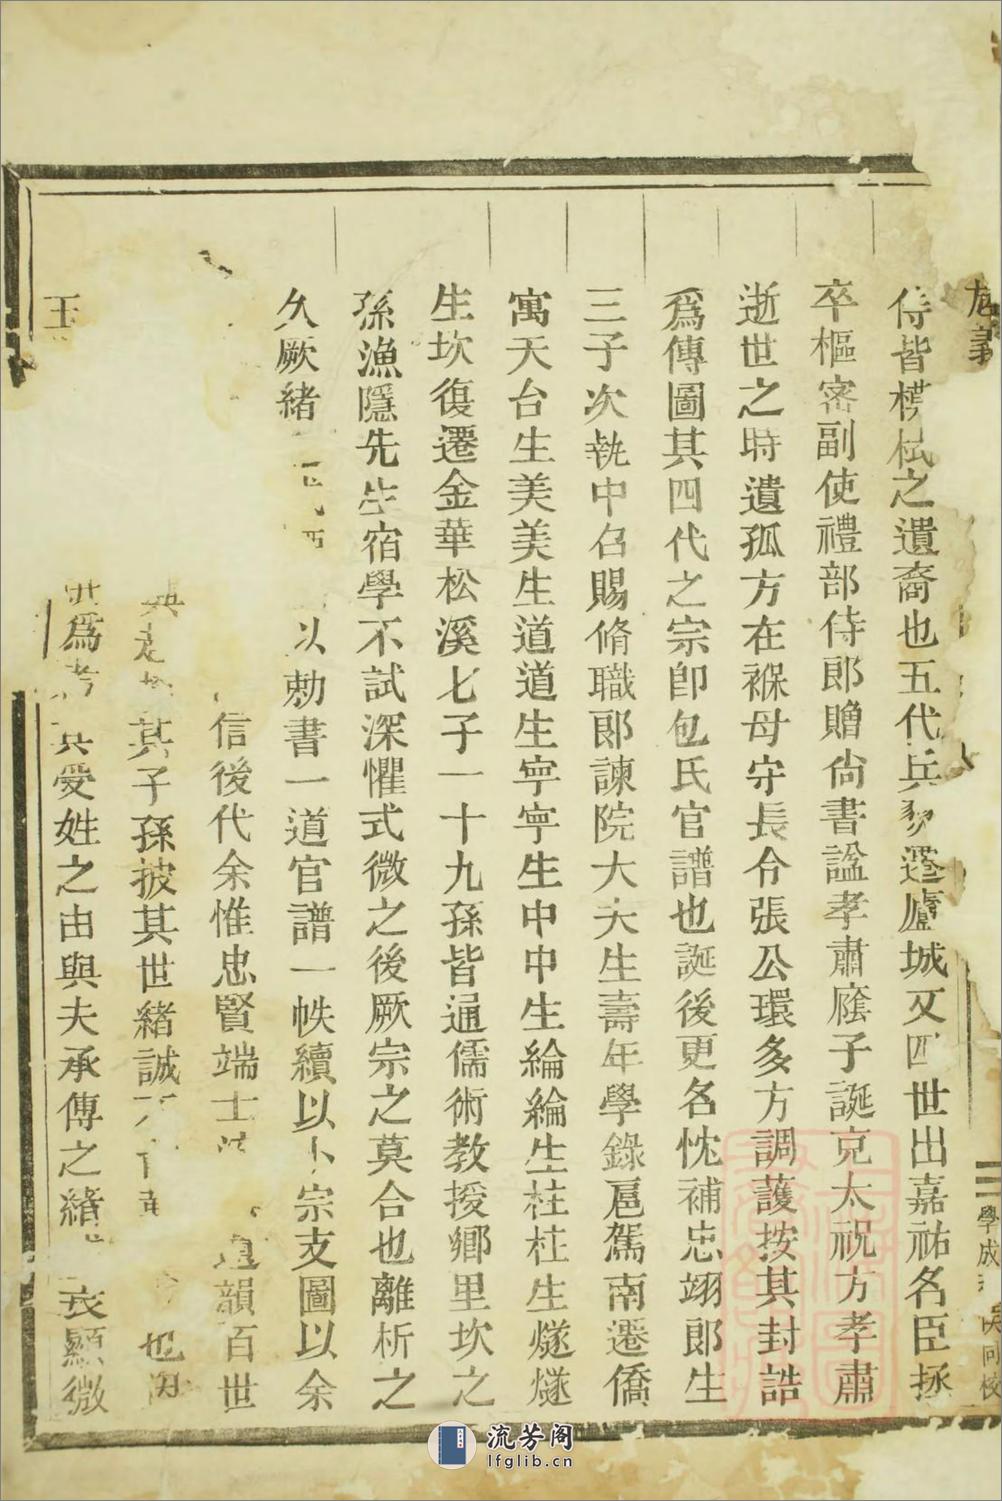 侍皆模栻之遺裔也五代兵遷廬城又四世出嘉祐名臣拯
卒樞密副使禮部侍郎贈尙書謚孝肅廕子誕克太祝方孝肅
逝世之時遺孤方在褓母守長令張公環多方調護按其封誥
爲傳圖其四代之宗卽包氏官譜也誕後更名忱補忠翊郎生
三子次執中召賜脩職郎諫院大夫生壽年學錄扈駕南遷僑
寓天台生美美生道道生寕寕生中中生綸綸生柱柱生燧燧
生坎復遷金華松溪七子一十九孫皆通儒術教授鄉里坎之
孫漁隱先生宿學不試深懼式微之後厥宗之莫合也離析之
久厥緒以勅書一道官譜一帙續以小宗支圖以余
信後代余惟忠賢端士遺韻百世
其子孫披其世緒誠也
爲受姓之由與夫承傳之緒顯微
學成 同校
流芳阁
lfglib.cn